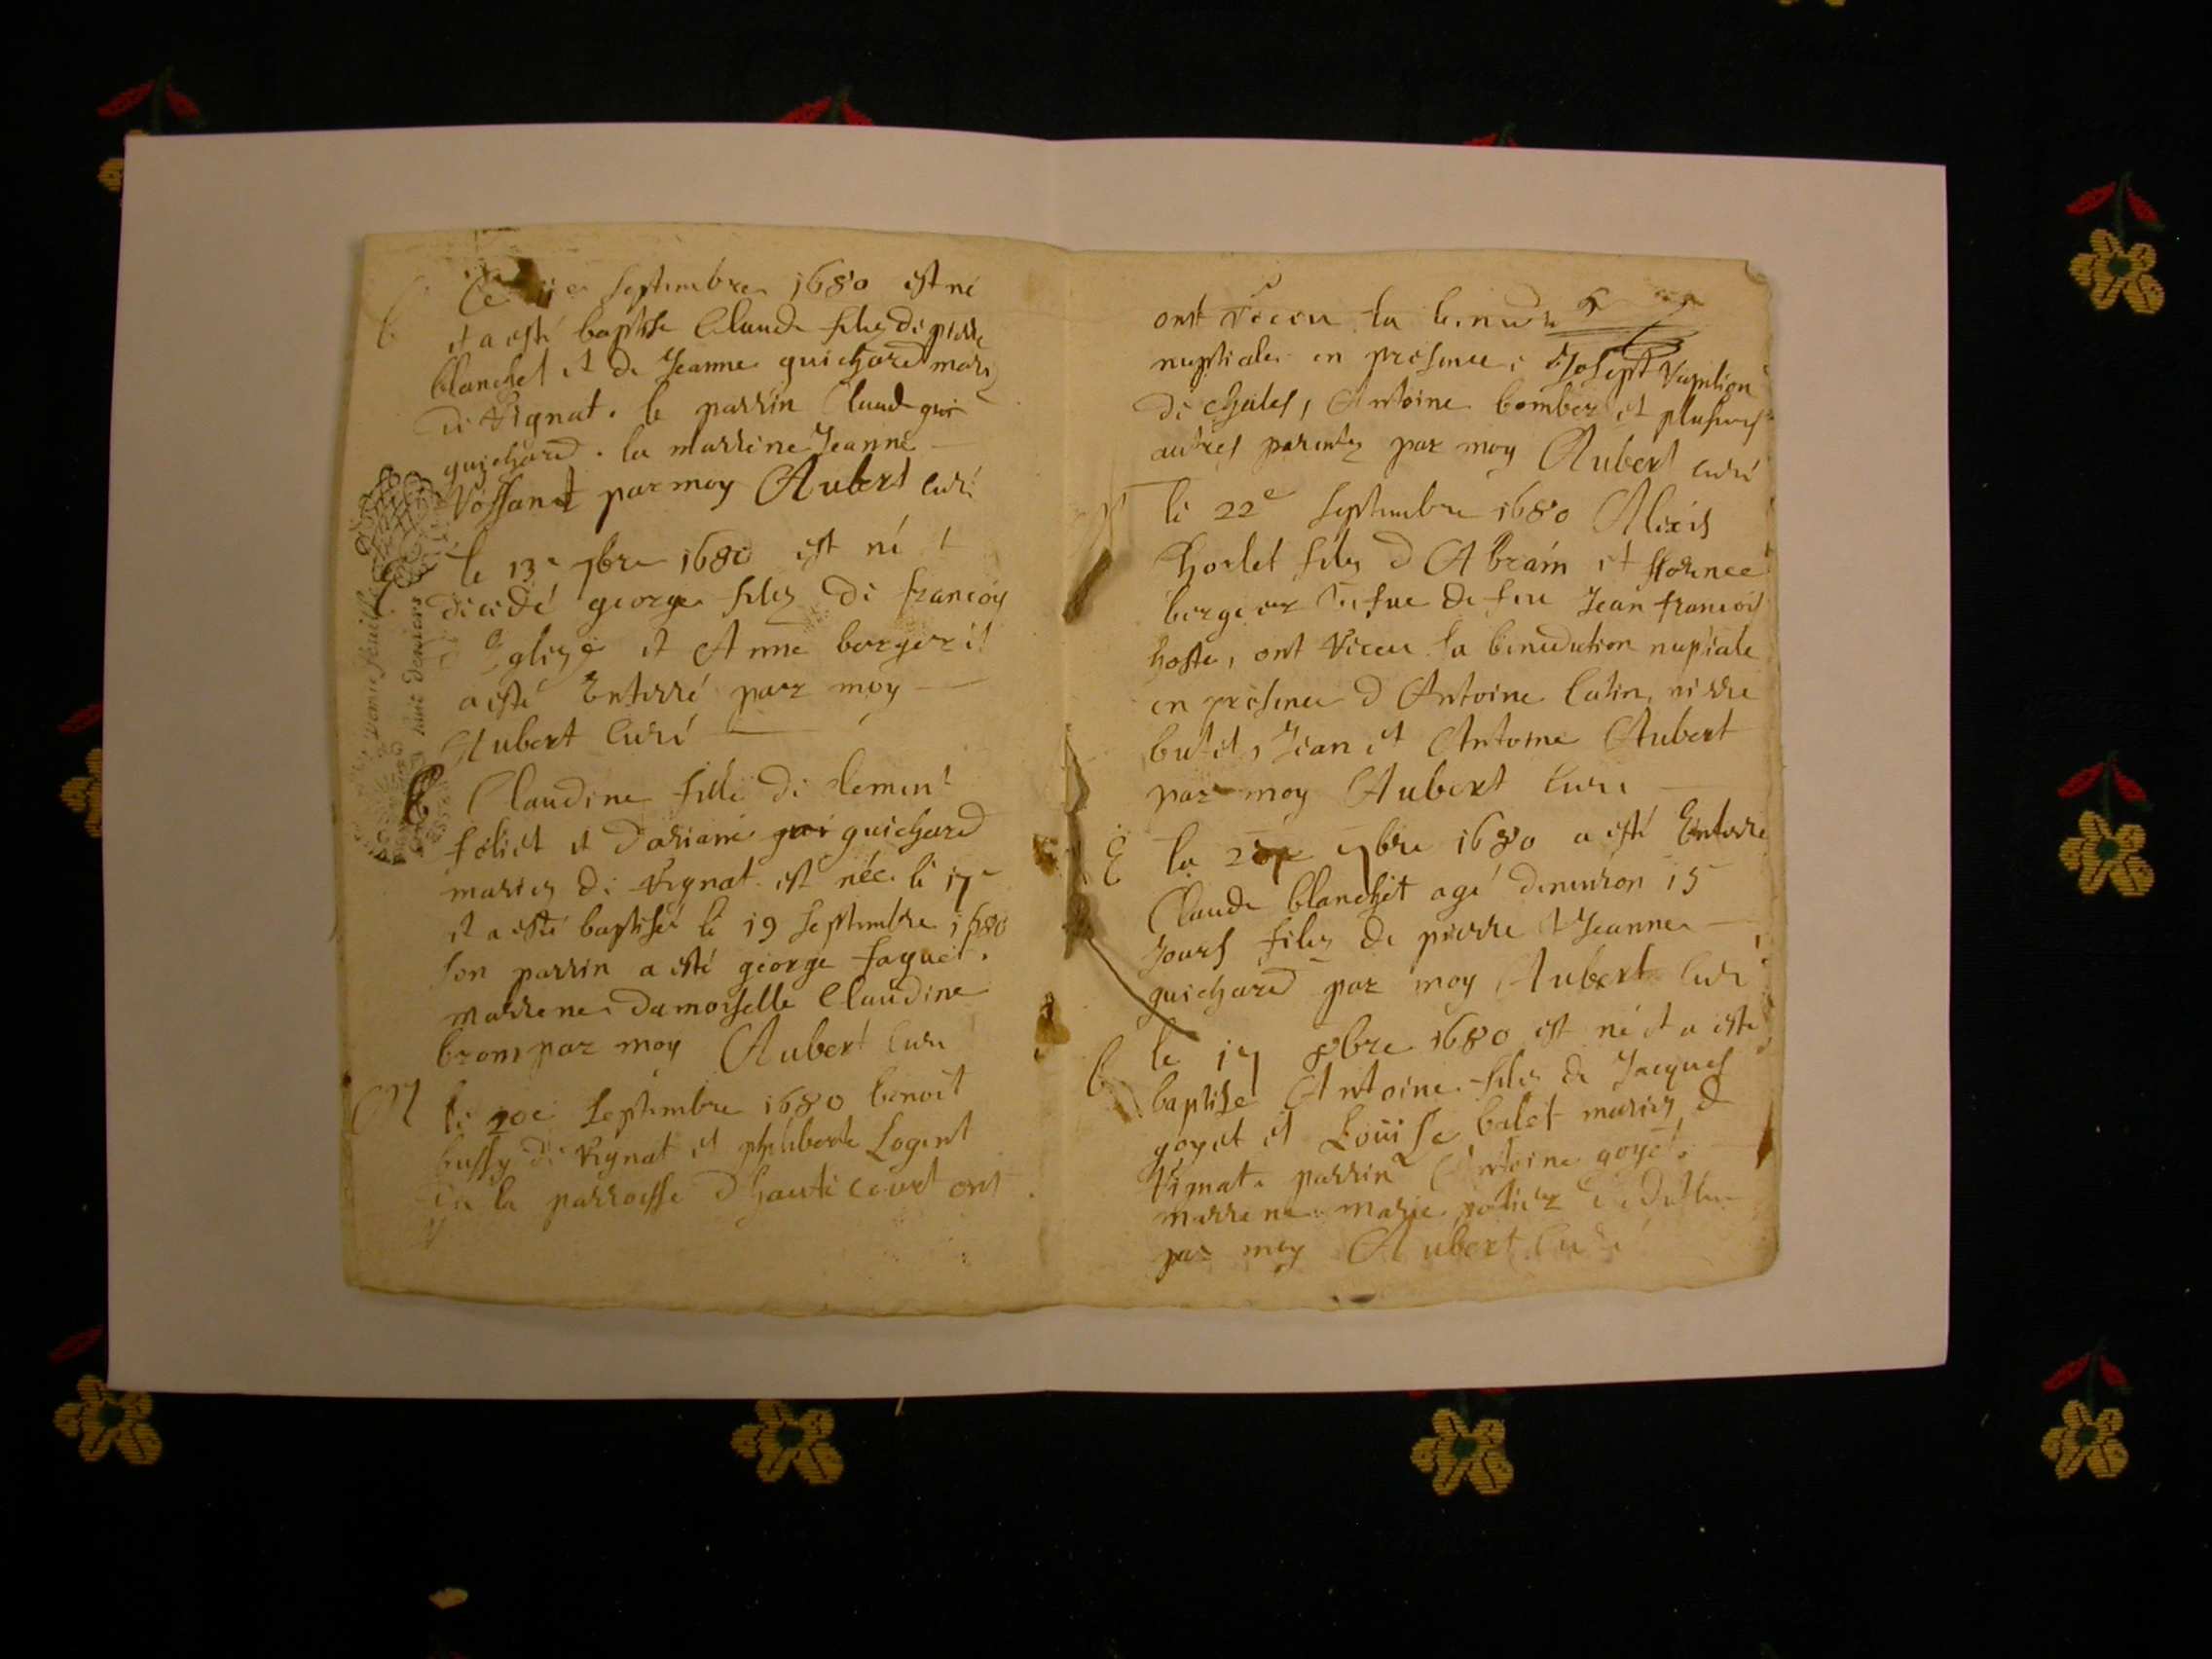 b
septembre 1680 est né
et a esté baptisé Claude filz de pierre
blanchet et de Jeanne guichard mariez
de vignat. le parrin Claude gui
guichard. la marrine Jeanne
Vossanet par moy Aubert curé
le 13e 7bre 1680 est né et
decedé george filz de francoy
et Anne berger et
a esté Enterré par moy
Aubert Curé
b Claudine fille de clement
feliet et dariane gui guichard
mariez de vignat est née le 17e
et a esté baptisée le 19 septembre 1680
son parrin a esté george faguet.
marrene damoiselle Claudine
brom par moy Aubert curé
M le 20e septembre 1680 benoit
bussy de vignat et philiberte Logent
de la parroisse d hautecourt ont
huit deniers
ont receu la
nuptiale en presence, Josept
de chales, Antoine bomber et plusieurs
autres parentz par moy Aubert curé
M le 22e septembre 1680 Alexis
filz d Abram et florence
berger vefue de feu Jean francois
hoste, ont receu la benediction nuptiale
en presence d Antoine Catin,
butet, Jean et Antoine Aubert
par moy Aubert curé
E 7bre 1680 a esté Enterré
Claude blanchet agé denviron 15
Jours filz de pierre et Jeanne
guichard par moy Aubert curé
b le 17 8bre 1680 est né et a esté
baptisé Antoine filz de Jacques
goyet et Louise balet mariez d
Vignat. parrin Antoine goyet.
marrene marie potier
par moy Aubert Curé